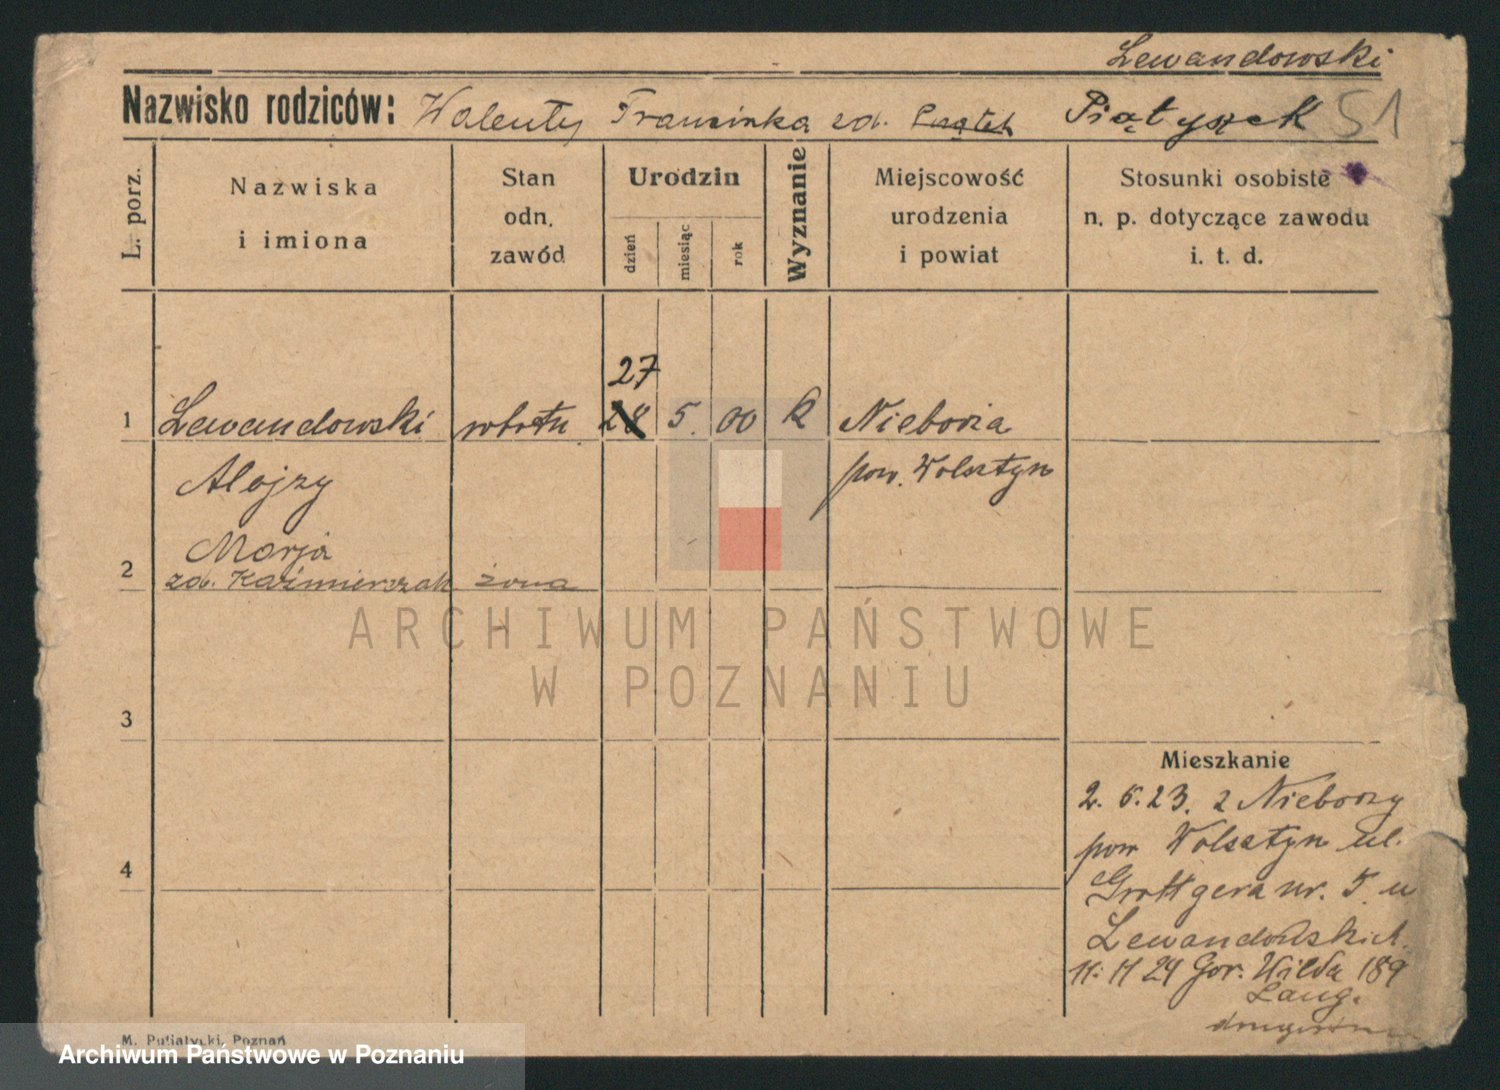 Lewandowski
Nazwisko rodziców: Walenty Franciszka zd. Piątek Piątyszek 51
L. porz.
Nazwiska
i imiona
Stan
odn.
zawód
Urodzin
dzień
miesiąc
rok
Wyznanie
Miejscowość
urodzenia
i powiat
Stosunki osobiste
n. p. dotyczące zawodu
i. t. d.
27
1 Lewandowski robotn 28 5. 00 k Nieborza
Alojzy pow. Wolsztyn
Marja
2 zd. Kaźmierczak żona
ARCHIWUM PAŃSTWOWE
W POZNANIU
3
Mieszkanie
2. 5. 23. z Nieborzy
pow Wolsztyn ul.
4
Grottgera nr. 5 u
Lewandowskich.
11. 11 24 Gór. Wilda 189
Lang.
M. Putiatycki, Poznań
Archiwum Państwowe w Poznaniu